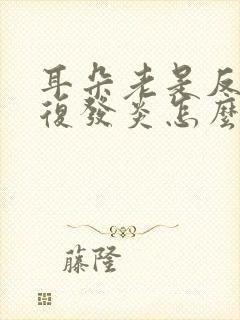 耳朵老是反
復發炎怎麼
藤隆